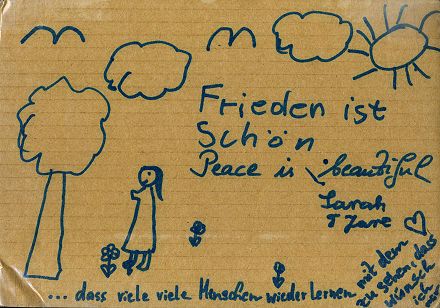 Frieden ist
Schön
Peace is beautiful
Sarah
7 Jare
... dass viele viele Menschen wieder lernen
mit dem
zu sehen das
wünsch
ich